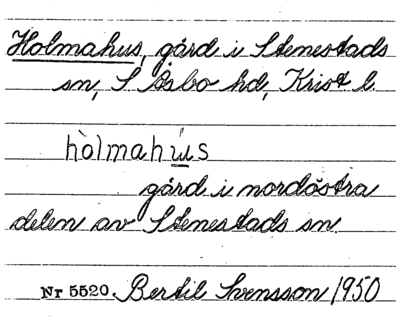 Holmahus, gård i Stenestads
sn, S. Åsbo hd, Krist l.
hòlmahú̲s
gård i nordöstra
delen av Stenestads sn.
Nr 5520. Bertil Svensson 1950